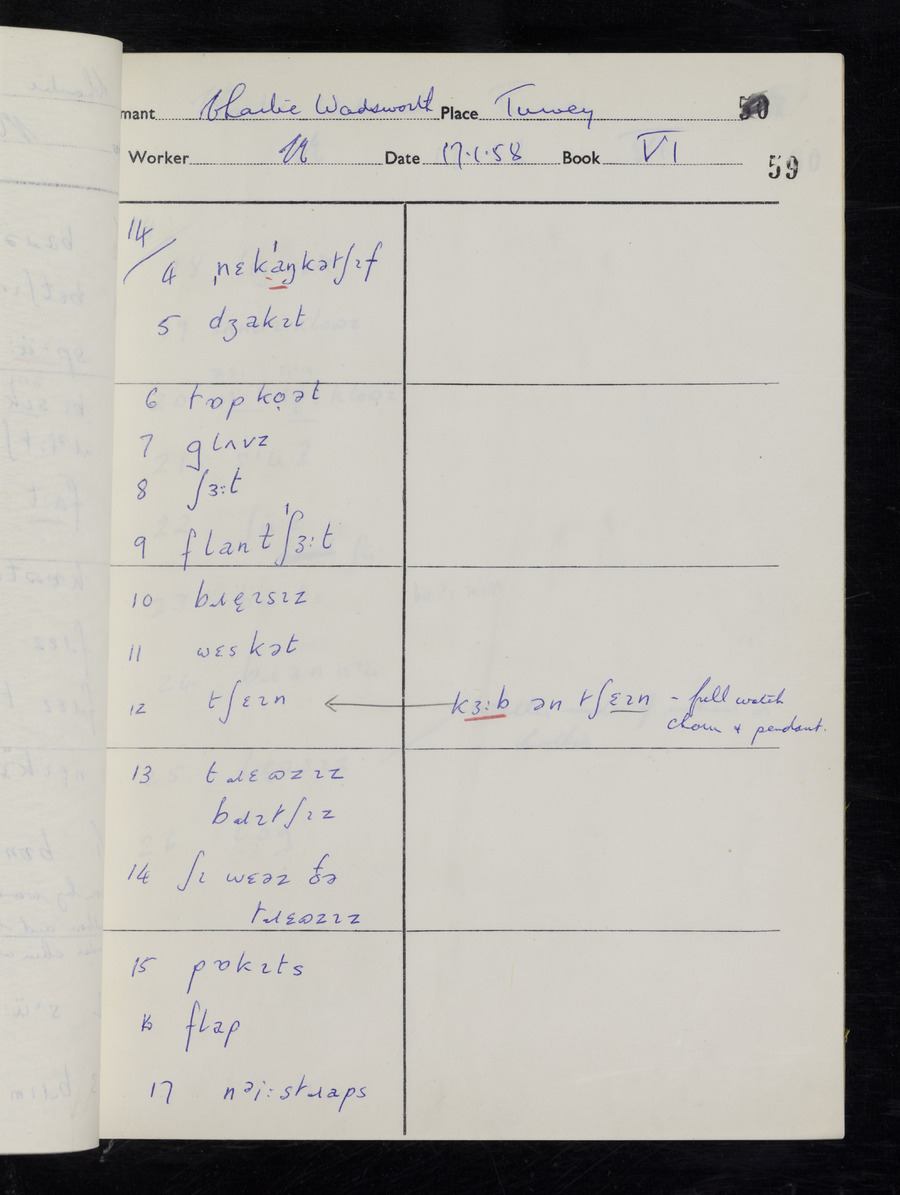 mant Charlie Wadsworth Place Turvey 50
Worker Date 17.1.58 Book VI
59
14/
4 ˌnɛkˈaŋkətʃɪf
5 dʒakɪt
6 tɒpkọət
7 glʌvz
8 ʃɜːt
9 flantˈʃɜːt
10 bɹɛ̣ɪsɪz
11 wɛskət
12 tʃɛɪn ← kɜːb ən tʃɛɪn - full watch
chain & pendant.
13 tɹɛʊzɪz
bɹɪtʃɪz
14 ʃɪ wɛəz ðə
tɹɛʊzɪz
15 pɒkɪts
16 flap
17 nəiːstɹaps